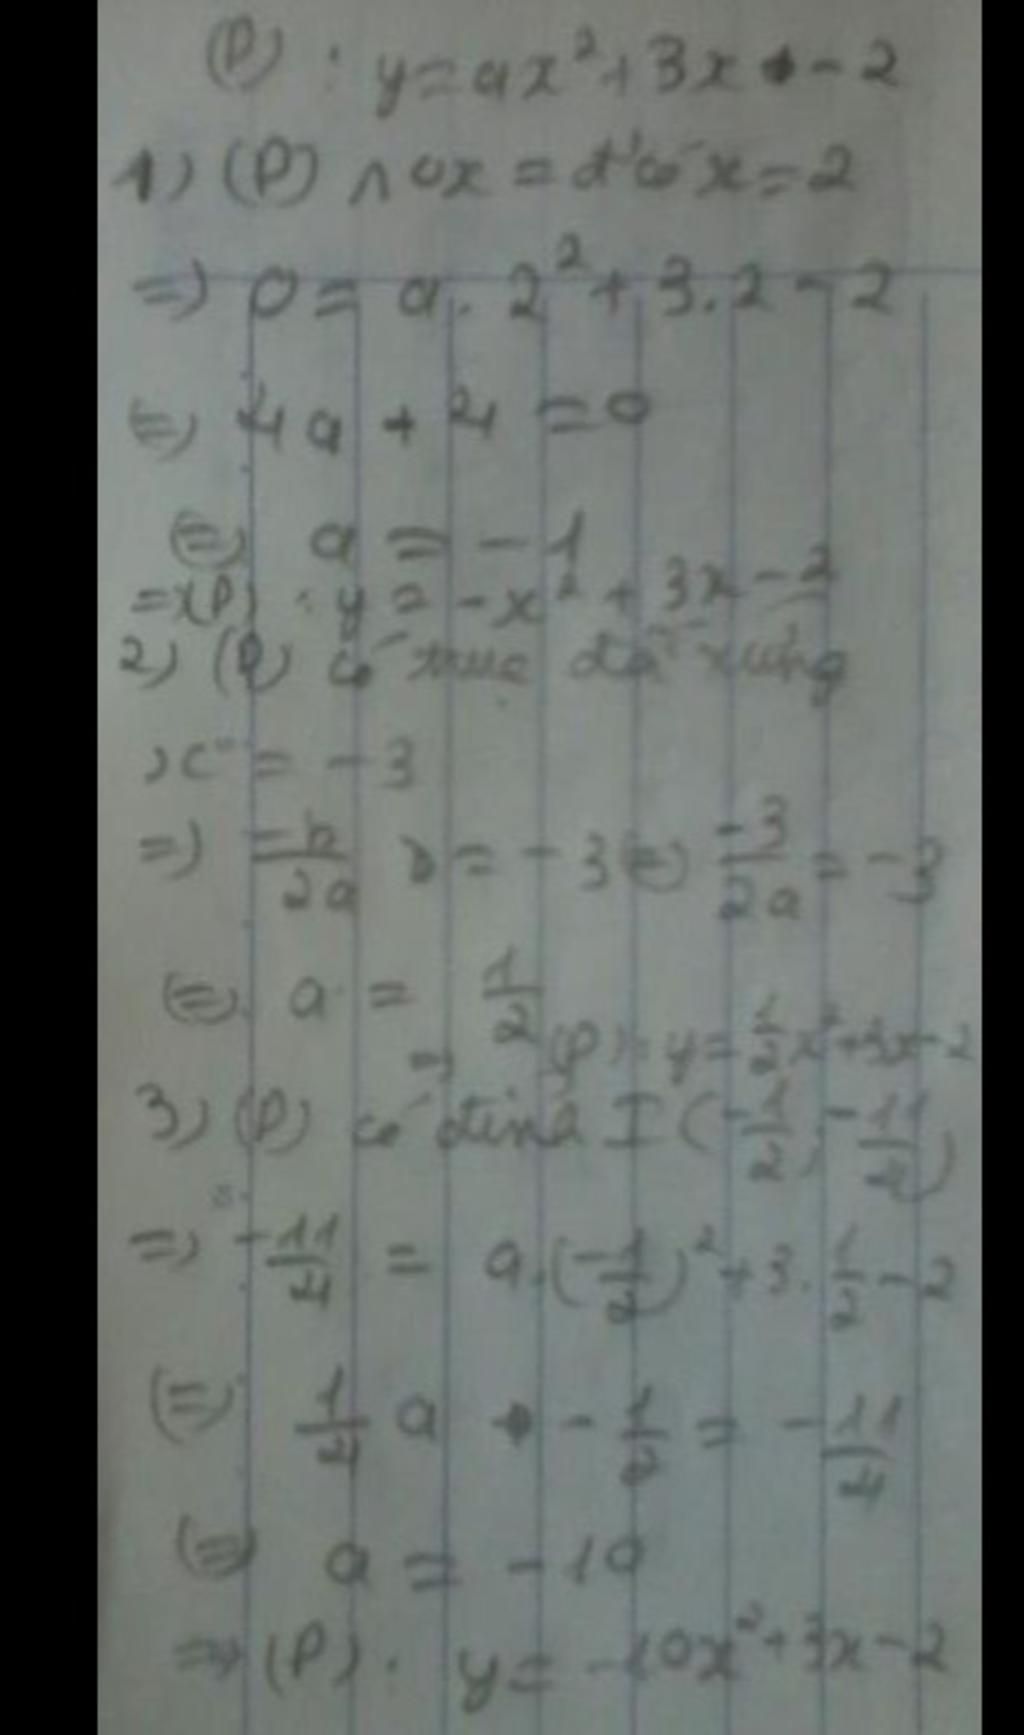 (P) : y = ax² + 3x - 2
1) (P) ∩ Ox = tại có x = 2
=> 0 = a. 2² + 3.2 - 2
<=> 4a + 4 = 0
<=> a = -1
=> (P) : y = -x² + 3x - 2
2) (P) có trục đối xứng
x = -3
=> -b/2a = -3 <=> -3/2a = -3
<=> a = 1/2
=> (P) : y = 1/2x² + 3x - 2
3) (P) có đỉnh I (-1/2; -11/4)
=> -11/4 = a.(-1/2)² + 3. 1/2 - 2
<=> 1/4 a - 1/2 = -11/4
<=> a = -10
=> (P) : y = -10x² + 3x - 2